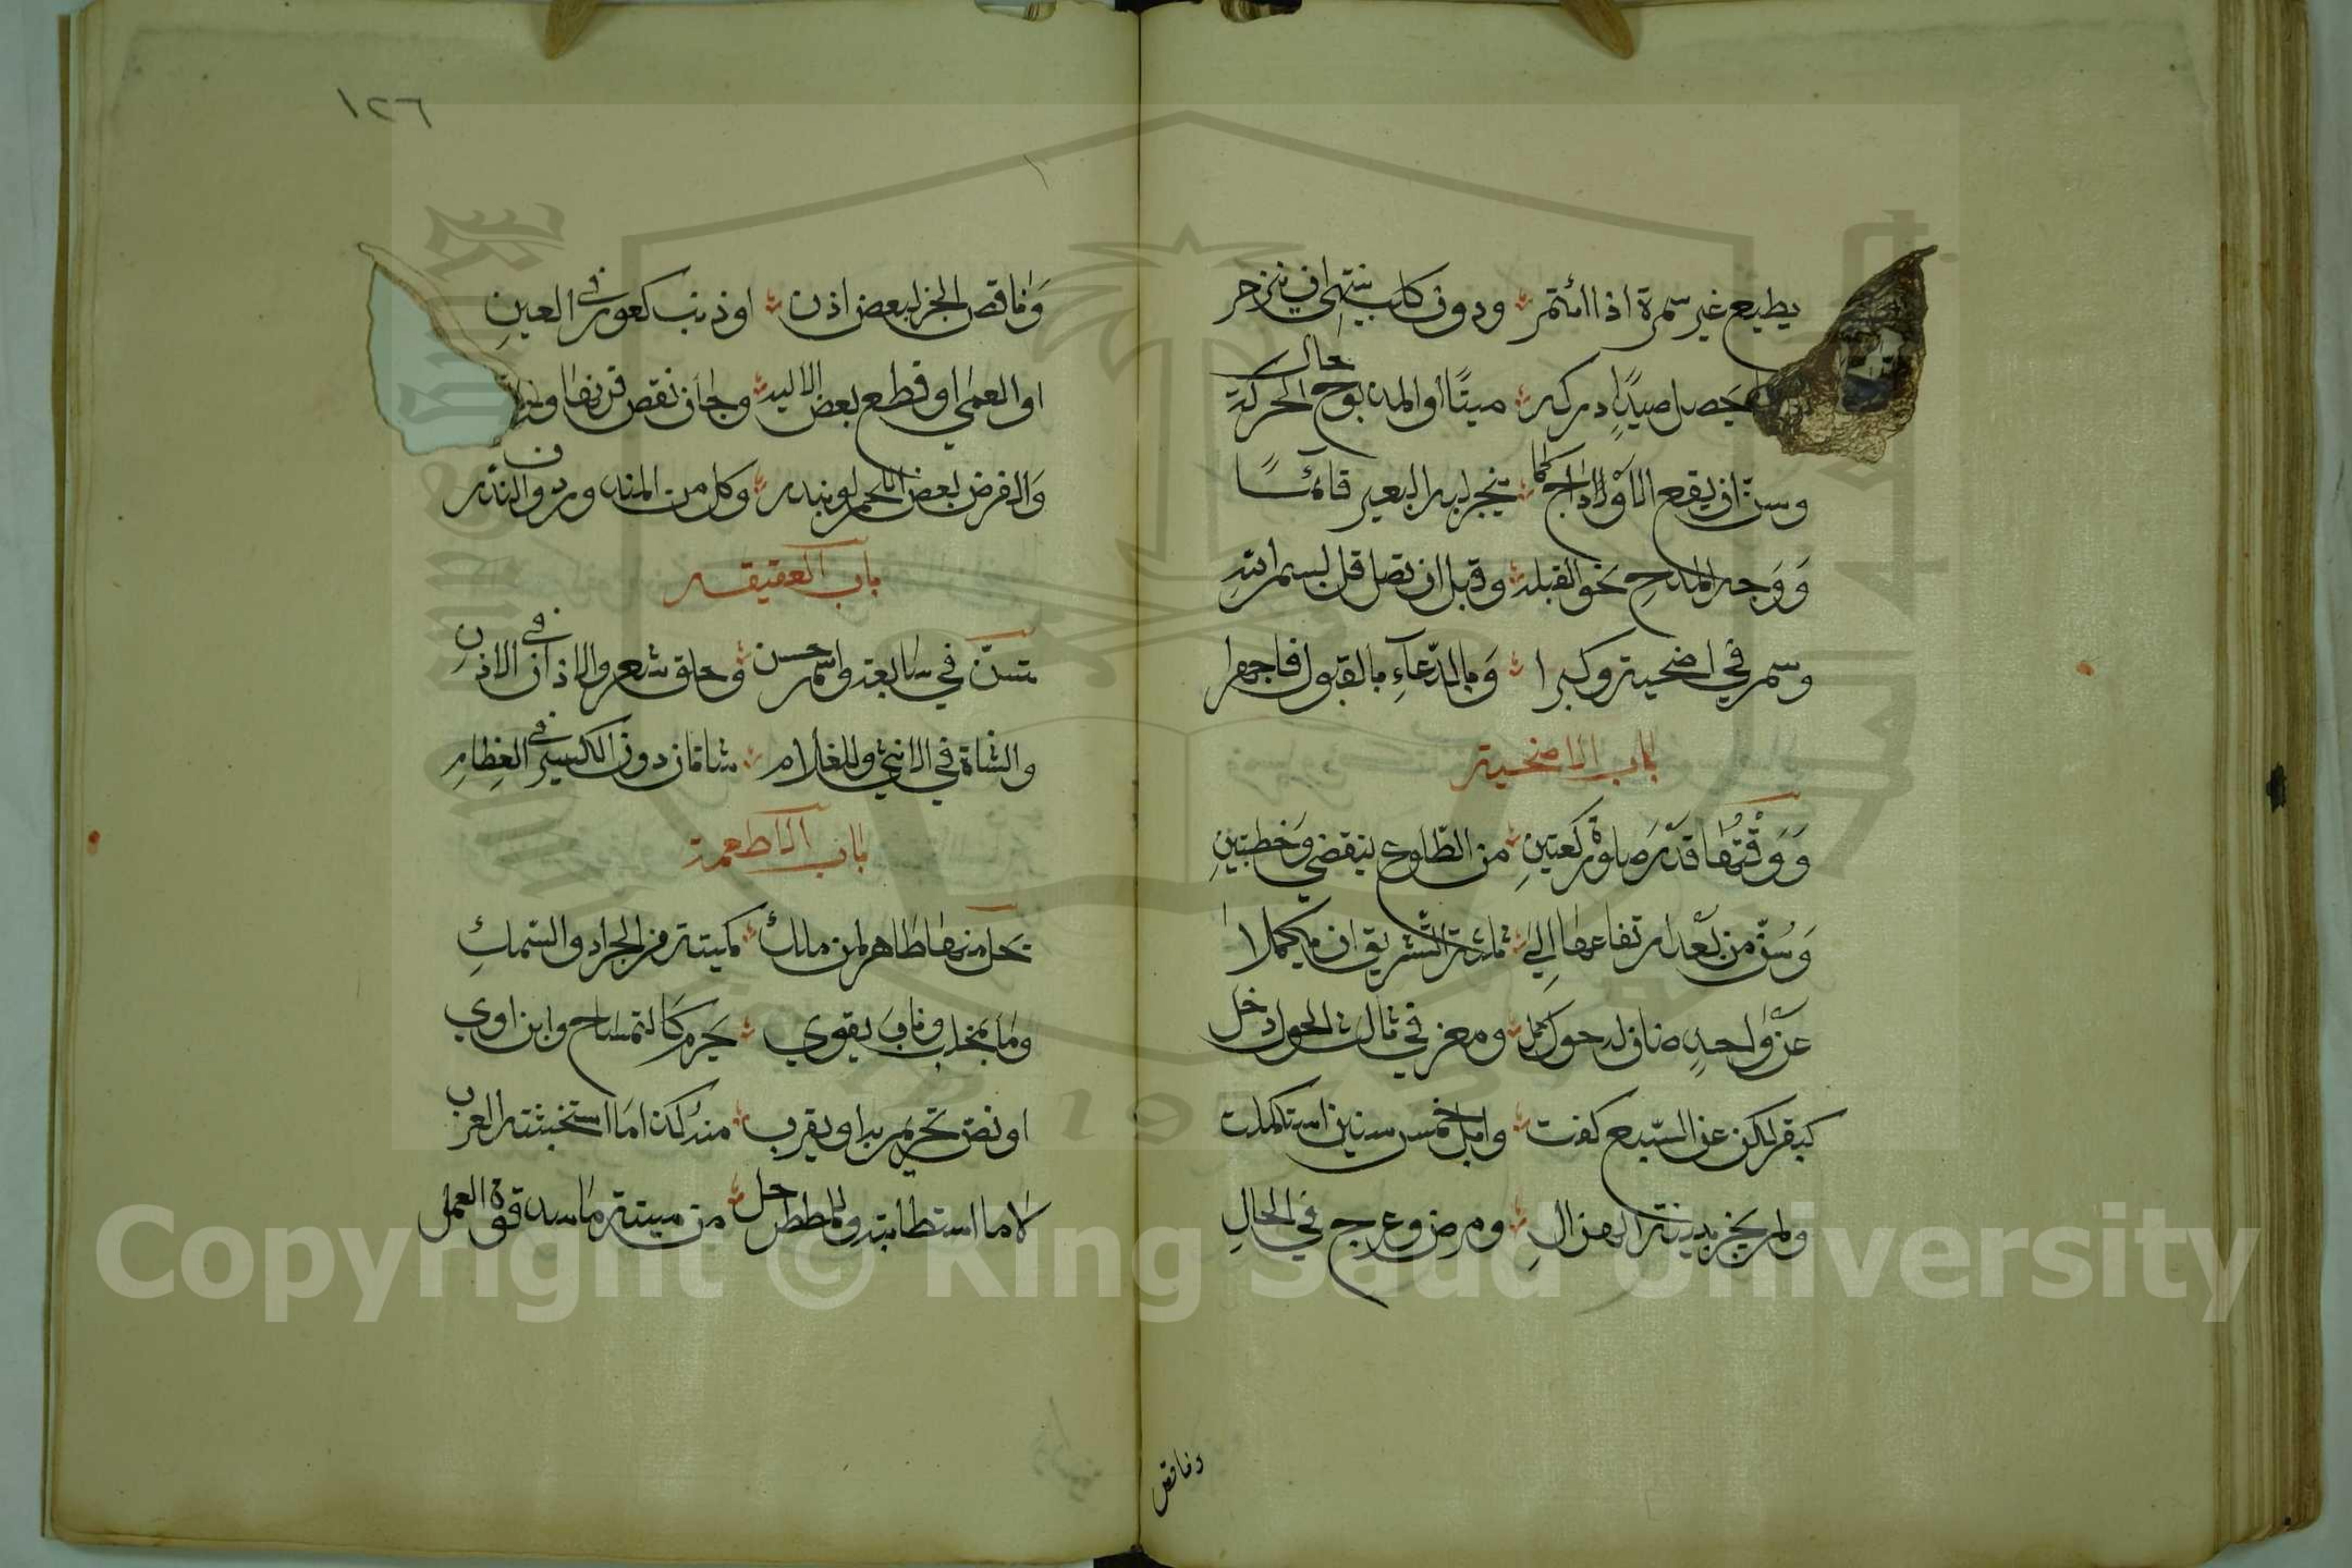 يطيع غير مرة اذا ائتمر ودون كلب ينتهي ان ينزجر
صيدا دركه ميتا او المذبوح حال الحركة
وسن ان يقطع الاوداج كما ينحر لبه البعير قائما
وَوَجه المذبح نحو القبله وقبل ان تصل قل بسم الله
وسم في اضحية وكبرا وَبالدّعآءِ بالقبول فاجهرا
باب الاضحية
وَوَقْتُها قدْرَ صلوة ركعتينِ من الطّلوع ينقضي وَخطبتينِ
وَسُنّ من بَعْد ارتفاعها اِلي ثلثة التّشريق ان يكملا
عنْ واحدٍ ضان له حول كمل ومعز في ثالث الحول دخل
كبقر لكن عن السّبع كفت وابل خمس سنين استكملت
ولم يجز بينة الهزالِ ومرض وعرج في الحالِ
وناقص
١٢٦
وَناقص الجزء لبعض اذن او ذنب كعور في العينِ
او العمي او قطع بعض الاليه وجاز نقص قرنها
وَالفرض بعض اللحم لو بنذر وكل من المندوب دون النذر
باب العقيقه
تسنّ في سابعه واسم حسن وحلق شعر والاذان في الاذنِ
والشاة في الانثي وللغلام شاتان دون الكسر في العِظامِ
باب الاطعمة
يحل منها طاهر لمن ملك كميتة من الجراد والسّمكِ
وما بمخلب وناب يقوي يحرم كالتمساح وابن اوي
او نصّ تحريم به او يقرب منه كذا ما استخبثته العرب
لا ما استطابته وللمضطر حل من ميتة ما سد قوة العمل
Copyright © King Saud University